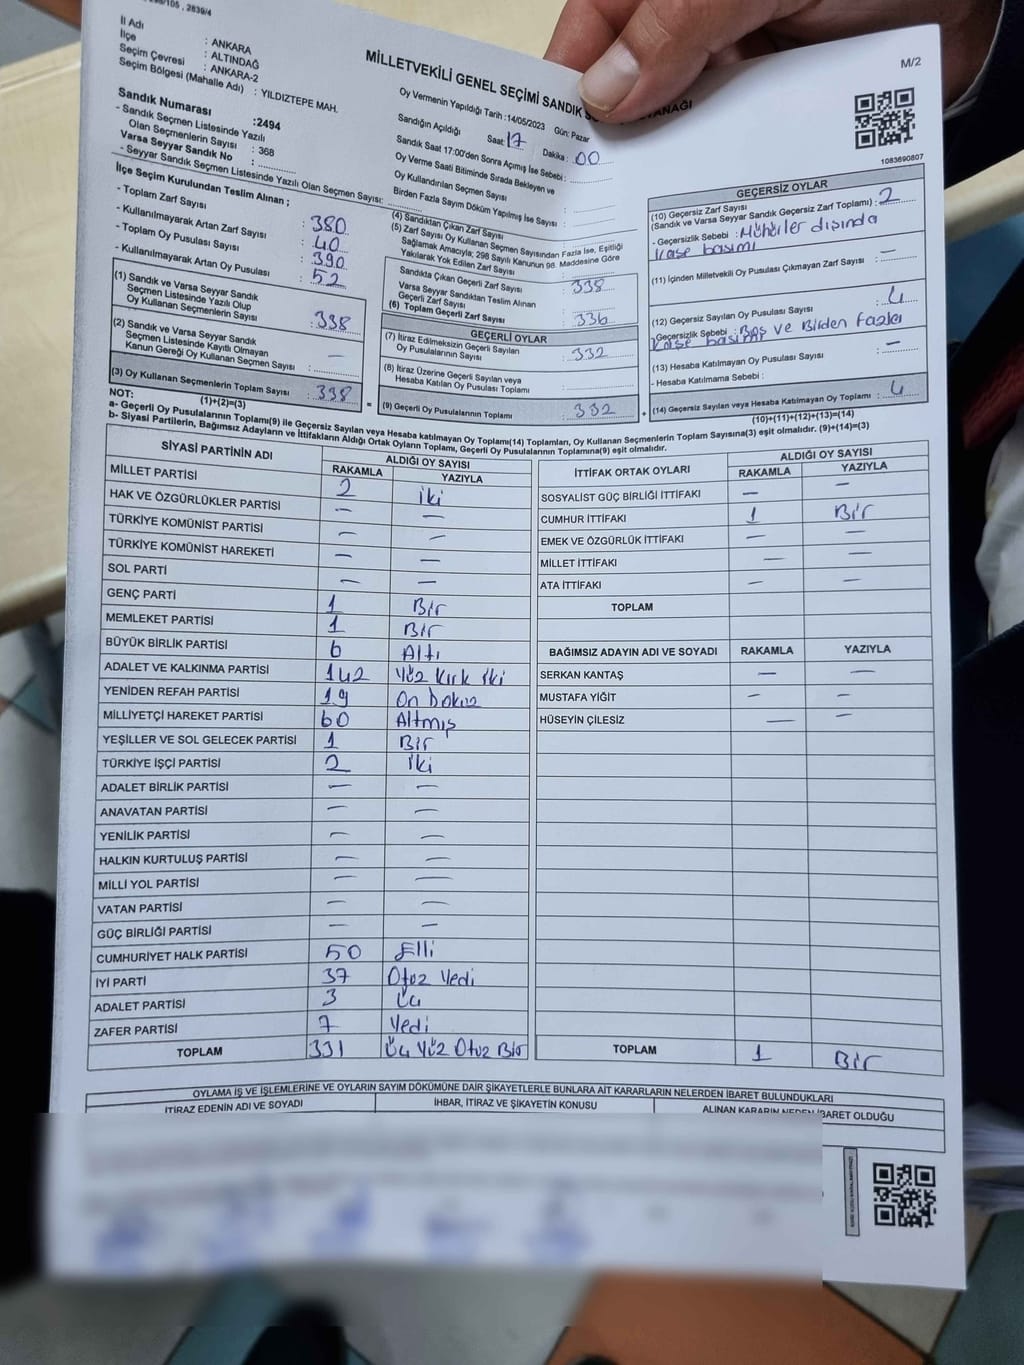 , 2839/4
İl Adı : ANKARA
İlçe : ALTINDAĞ
Seçim Çevresi : ANKARA-2
Seçim Bölgesi (Mahalle Adı) : YILDIZTEPE MAH.
MİLLETVEKİLİ GENEL SEÇİMİ SANDIK
M/2
1083690807
Sandık Numarası :2494
- Sandık Seçmen Listesinde Yazılı
Olan Seçmenlerin Sayısı : 368
Varsa Seyyar Sandık No :
- Seyyar Sandık Seçmen Listesinde Yazılı Olan Seçmen Sayısı:
İlçe Seçim Kurulundan Teslim Alınan ;
- Toplam Zarf Sayısı : 380
- Kullanılmayarak Artan Zarf Sayısı : 40
- Toplam Oy Pusulası Sayısı : 390
- Kullanılmayarak Artan Oy Pusulası : 52
(1) Sandık ve Varsa Seyyar Sandık
Seçmen Listesinde Yazılı Olup
Oy Kullanan Seçmenlerin Sayısı : 338
(2) Sandık ve Varsa Seyyar Sandık
Seçmen Listesinde Kayıtlı Olmayan
Kanun Gereği Oy Kullanan Seçmen Sayısı : —
(3) Oy Kullanan Seçmenlerin Toplam Sayısı : 338
(1)+(2)=(3)
Oy Vermenin Yapıldığı Tarih :14/05/2023 Gün: Pazar
Sandığın Açıldığı Saat: 17 Dakika : 00
Sandık Saat 17:00'den Sonra Açımış İse Sebebi :
Oy Verme Saati Bitiminde Sırada Bekleyen ve
Oy Kullandırılan Seçmen Sayısı :
Birden Fazla Sayım Döküm Yapılmış İse Sayısı :
(4) Sandıktan Çıkan Zarf Sayısı :
(5) Zarf Sayısı Oy Kullanan Seçmen Sayısından Fazla İse, Eşitliği
Sağlamak Amacıyla; 298 Sayılı Kanunun 98. Maddesine Göre
Yakılarak Yok Edilen Zarf Sayısı :
Sandıkta Çıkan Geçerli Zarf Sayısı : 338
Varsa Seyyar Sandıktan Teslim Alınan
Geçerli Zarf Sayısı :
(6) Toplam Geçerli Zarf Sayısı : 336
GEÇERLİ OYLAR
(7) İtiraz Edilmeksizin Geçerli Sayılan
Oy Pusulalarının Sayısı : 332
(8) İtiraz Üzerine Geçerli Sayılan veya
Hesaba Katılan Oy Pusulası Toplamı :
(9) Geçerli Oy Pusulalarının Toplamı : 332
GEÇERSİZ OYLAR
(10) Geçersiz Zarf Sayısı
(Sandık ve Varsa Seyyar Sandık Geçersiz Zarf Toplamı) : 2
- Geçersizlik Sebebi : Mühürler dışında
kaşe basımı
(11) İçinden Milletvekili Oy Pusulası Çıkmayan Zarf Sayısı :
(12) Geçersiz Sayılan Oy Pusulası Sayısı : 4
- Geçersizlik Sebebi : Boş ve Birden Fazla
kaşe basımı
(13) Hesaba Katılmayan Oy Pusulası Sayısı : —
- Hesaba Katılmama Sebebi :
(14) Geçersiz Sayılan veya Hesaba Katılmayan Oy Toplamı : 4
(10)+(11)+(12)+(13)=(14)
NOT:
a- Geçerli Oy Pusulalarının Toplamı(9) ile Geçersiz Sayılan veya Hesaba katılmayan Oy Toplamı(14) Toplamları, Oy Kullanan Seçmenlerin Toplam Sayısına(3) eşit olmalıdır. (9)+(14)=(3)
b- Siyasi Partilerin, Bağımsız Adayların ve İttifakların Aldığı Ortak Oyların Toplamı, Geçerli Oy Pusulalarının Toplamına(9) eşit olmalıdır.
SİYASİ PARTİNİN ADI ALDIĞI OY SAYISI
RAKAMLA YAZIYLA
MİLLET PARTİSİ 2 iki
HAK VE ÖZGÜRLÜKLER PARTİSİ — —
TÜRKİYE KOMÜNİST PARTİSİ — —
TÜRKİYE KOMÜNİST HAREKETİ — —
SOL PARTİ — —
GENÇ PARTİ 1 Bir
MEMLEKET PARTİSİ 1 Bir
BÜYÜK BİRLİK PARTİSİ 6 Altı
ADALET VE KALKINMA PARTİSİ 142 Yüz Kırk iki
YENİDEN REFAH PARTİSİ 19 On Dokuz
MİLLİYETÇİ HAREKET PARTİSİ 60 Altmış
YEŞİLLER VE SOL GELECEK PARTİSİ 1 Bir
TÜRKİYE İŞÇİ PARTİSİ 2 iki
ADALET BİRLİK PARTİSİ — —
ANAVATAN PARTİSİ — —
YENİLİK PARTİSİ — —
HALKIN KURTULUŞ PARTİSİ — —
MİLLİ YOL PARTİSİ — —
VATAN PARTİSİ — —
GÜÇ BİRLİĞİ PARTİSİ — —
CUMHURİYET HALK PARTİSİ 50 Elli
İYİ PARTİ 37 Otuz Yedi
ADALET PARTİSİ 3 Üç
ZAFER PARTİSİ 7 Yedi
TOPLAM 331 Üç Yüz Otuz Bir
İTTİFAK ORTAK OYLARI ALDIĞI OY SAYISI
RAKAMLA YAZIYLA
SOSYALİST GÜÇ BİRLİĞİ İTTİFAKI — —
CUMHUR İTTİFAKI 1 Bir
EMEK VE ÖZGÜRLÜK İTTİFAKI — —
MİLLET İTTİFAKI — —
ATA İTTİFAKI — —
TOPLAM
BAĞIMSIZ ADAYIN ADI VE SOYADI RAKAMLA YAZIYLA
SERKAN KANTAŞ — —
MUSTAFA YİĞİT — —
HÜSEYİN ÇİLESİZ — —
TOPLAM 1 Bir
OYLAMA İŞ VE İŞLEMLERİNE VE OYLARIN SAYIM DÖKÜMÜNE DAİR ŞİKAYETLERLE BUNLARA AİT KARARLARIN NELERDEN İBARET BULUNDUKLARI
İTİRAZ EDENİN ADI VE SOYADI İHBAR, İTİRAZ VE ŞİKAYETİN KONUSU ALINAN KARARIN NEDEN İBARET OLDUĞU